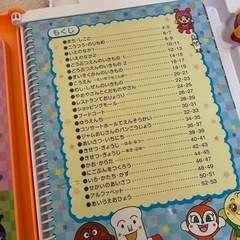 もくじ
●まち・しごと 4-5
●こうつう・のりもの 6-7
●いえのなか1 8-9
●いえのなか2 10-11
●どうぶつえんのいきもの1 12-13
●どうぶつえんのいきもの2 14-15
●こうえん 16-17
●すいぞくかんのいきもの 18-19
●のやま・しぜんのいきもの 20-21
●おやさいとくだものやさん 22-23
●レストランでおしょくじ 24-25
●ショッピングモール 26-27
●フードコート 28-29
●ゆうえんち 30-31
●コンサートホールでえんそうかい 32-33
●ジャムおじさんのパンこうじょう 34-35
●あいさつ・いちにち 36-37
●きせつ・ぎょうじ 38-39
●きせつ・ぎょうじ 40-41
●かお・からだ 42-43
●にこぷんをつくろう 44-45
●いろ・かたち・かず 46-47
●せかいのあいさつ 48-49
●アルファベット 50-51
●あいうえおひょう 52-53